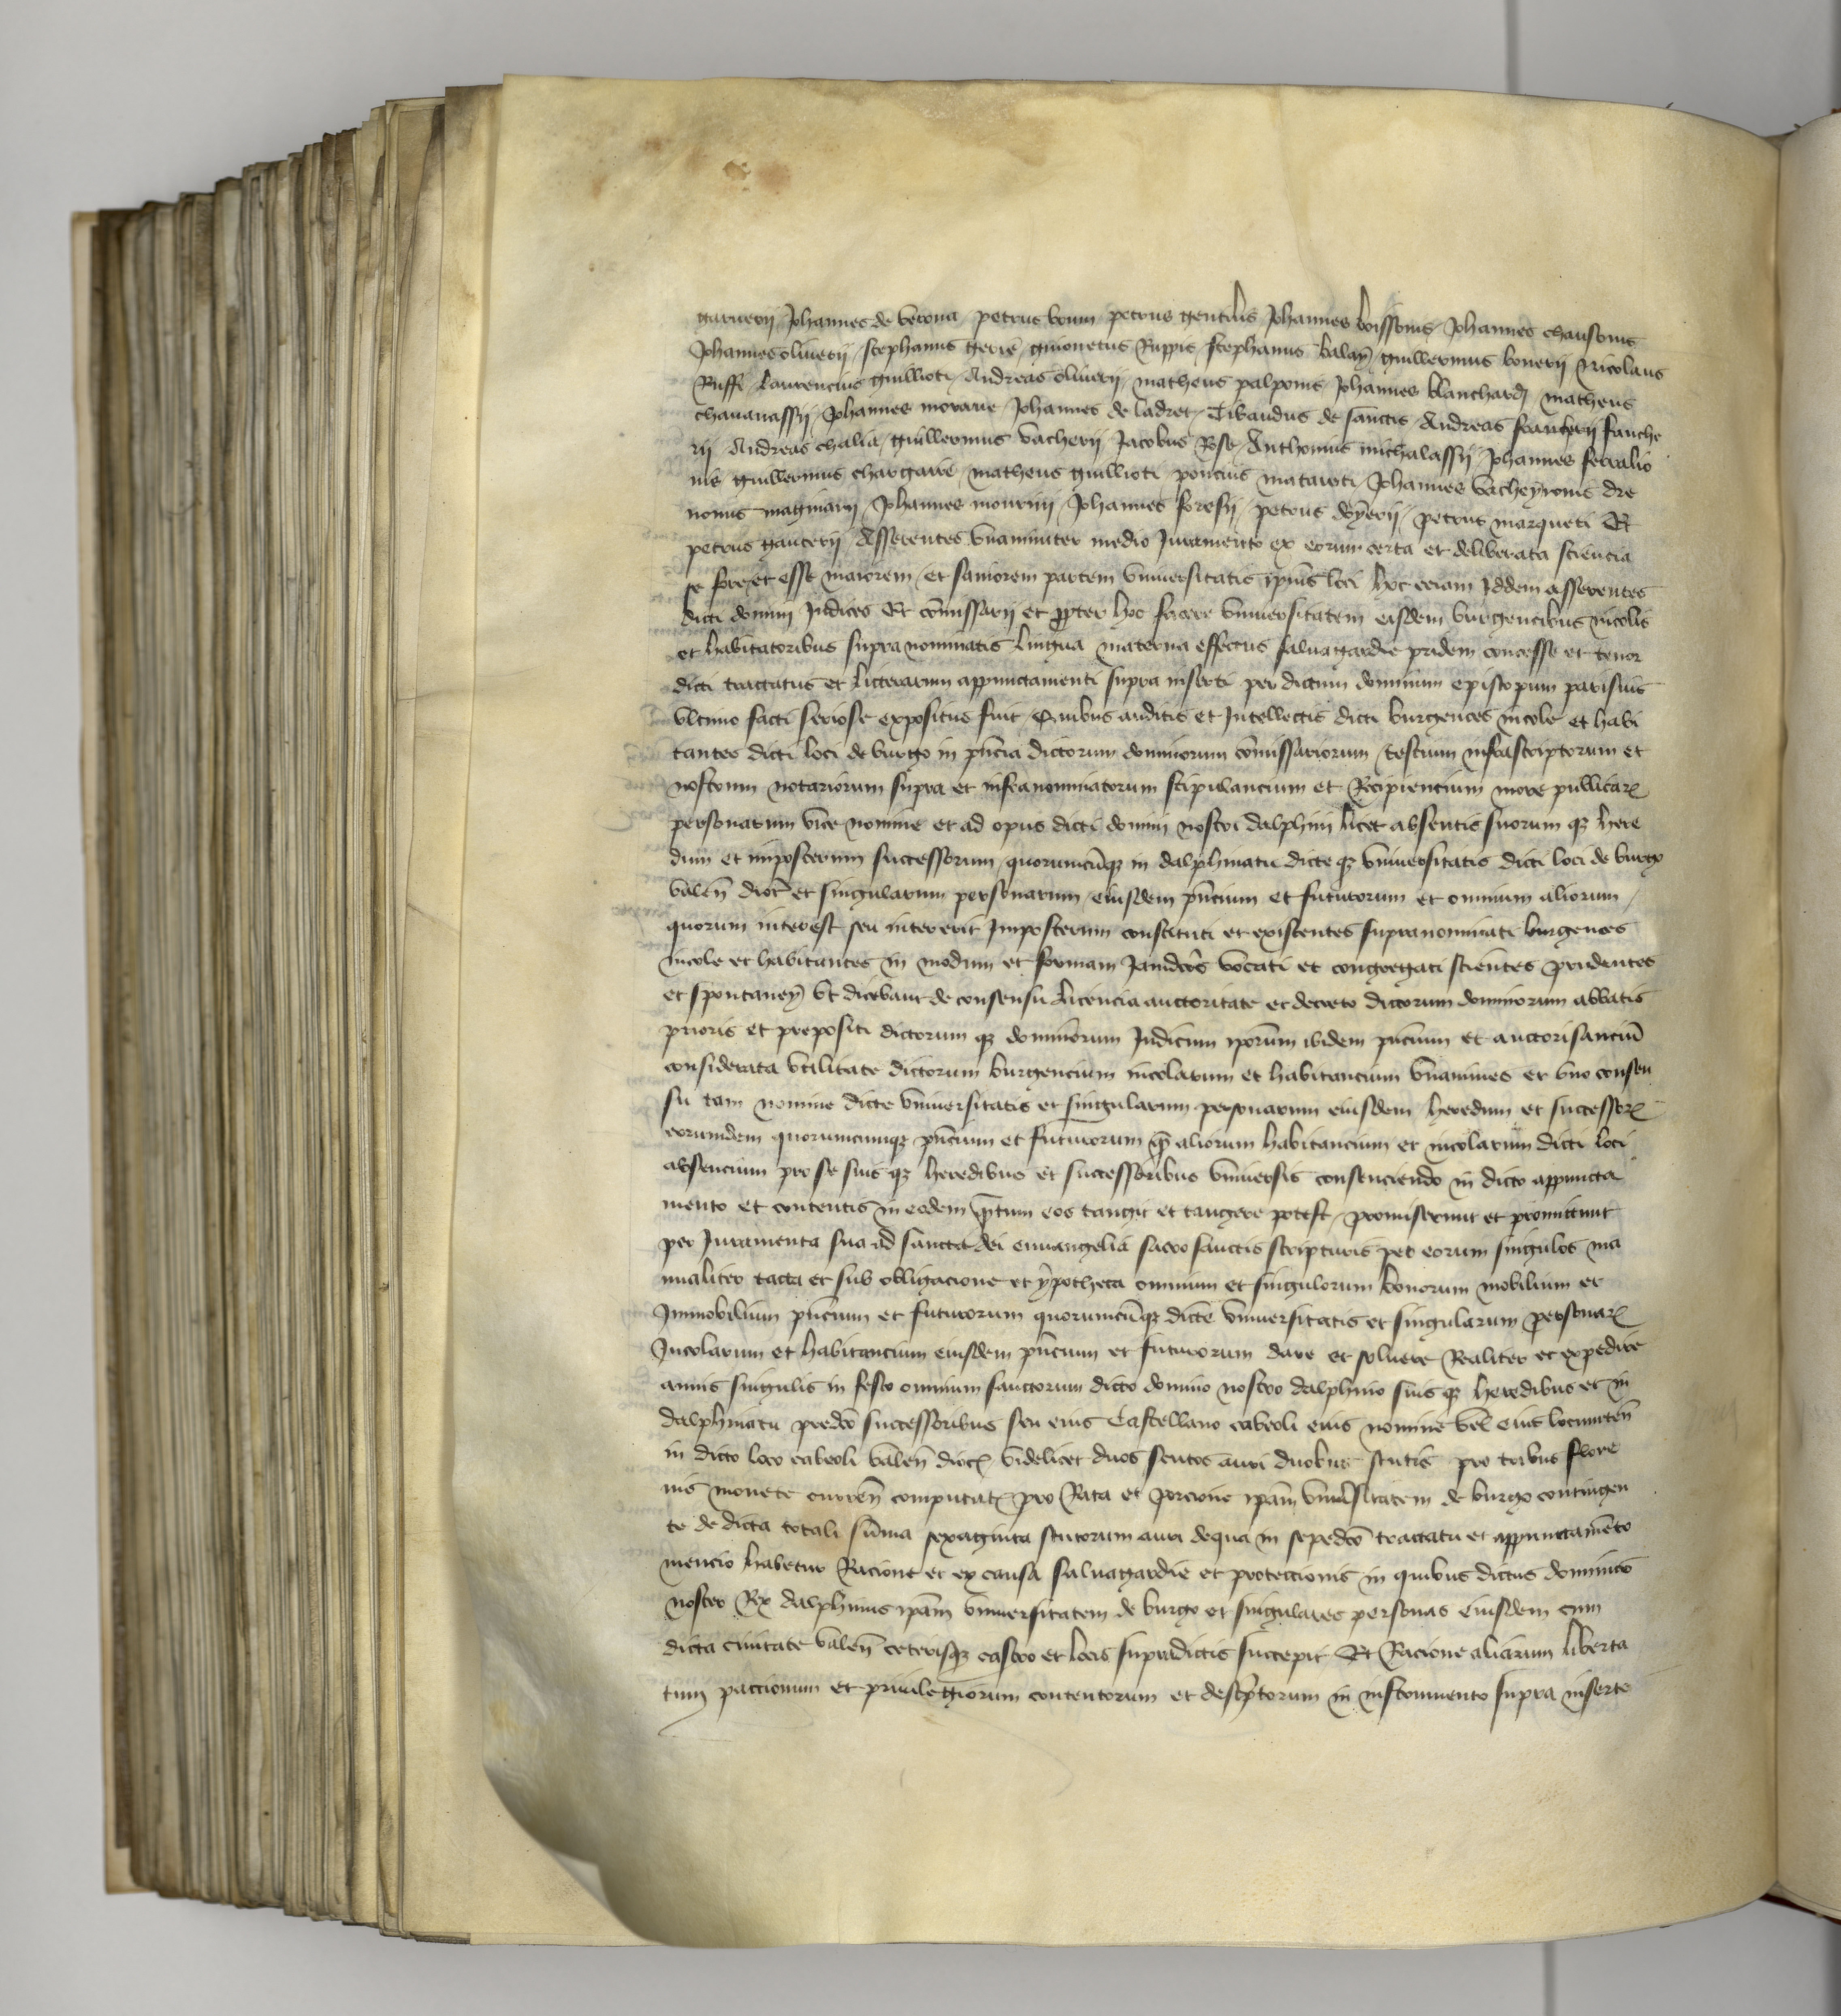 garnerii Johannes de verona petrus bouin petrus gentilis Johannes boissonis Johannes chausonis
Johannes oliuerii stephanus gerie guionetus Ruppis stephanus balay guillermus bonerii Nicolaus
Ruffi laurencius guillioti Andreas oliuerii matheus palponis Johannes blanchardi matheus
chauanassii Johannes morarie Johannes de ladret Tibaudus de sanctis Andreas fauche
rii Andreas chalia guillermus vacherii Jacobus Rose Anthonius michalassii Johannes
nis guillermus chargarie matheus guillioti poncius mataroti Johannes vacheyronis dre
nonus magniarii Johannes mourini Johannes foresii petrus doyerii petrus marqueti Et
petrus gauterii Asserentes vnanimiter medio Juramento ex eorum certa et deliberata sciencia
se fore et esse maiorem et saniorem partem vniuersitatis ipius loci hoc eciam Iddem asserentes
dicti domini Judices Et comissarii et ppter hoc facere vniuersitatem eisdem burgencibus incolis
et habitatoribus supra nominatis lingua materna effectus saluagardie pridem concesse et tenor
dicti tractatus et litterarum appunctamenti supra inserti per dictum dominum episcopum parisius
vltimo facti seriose expositus fuit Quibus auditis et Intellectis dicti burgences incole et habi
tantes dicti loci de burgo in pncia dictorum dominorum comissariorum testium infrascriptorum et
nostrum notariorum supra et infranominatorum stipulancium et Recipiencium more publicar
personarum vice nomine et ad opus dicti domini nostri dalphini licet absentis suorum qz here
dum et imposterum successorum quorumcunqz in dalphinatu dicte qz vniuersitatis dicti loci de burgo
valen dioc et singularum personarum eiusdem pncium et futurorum et omnium aliorum
quorum interest seu intererit Imposterum constituti et existentes supranominati burgences
incole et habitantes in modum et formam Jamdcos vocati et congregati scientes prudentes
et spontaney vt dicebant de consensu licencia auctoritate et decreto dictorum dominorum abbatis
prioris et prepositi dictorum qz dominorum Judicum iporum ibidem pncium et auctorisanciu
considerata vtilitate dictorum burgencium incolarum et habitancium vnanimes et vno consen
su tam nomine dicte vniuersitatis et singularum personarum eiusdem heredum et successor
eorumdem quorumcunqz pncium et futurorum qm aliorum habitancium et incolarum dicti loci
absencium pro se suis qz heredibus et successoribus vniuersis consenciendo in dicto appuncta
mento et contentis in eodem qntum eos tangit et tangere potest promiserunt et promittunt
per Juramenta sua ad sancta dei euuangelia sacro sanctis scripturis per eorum singulos ma
nualiter tacta et sub obligacione et ypotheca omnium et singulorum bonorum mobilium et
Immobilium pncium et futurorum quorumcunqz dicte vniuersitatis et singularum personar
Incolarum et habitancium eiusdem pncium et futurorum dare et soluere Realiter et expedire
annis singulis in festo omnium sanctorum dicto domino nostro dalphino suis qz heredibus et in
dalphinatu predco successoribus seu eius Castellano cabeoli eius nomine vel eius locumten
in dicto loco cabeoli valen dioc videlicet duos scutos auri duobus scutis pro tribus flore
nis monete curren computat pro Rata et porcione ipam vniusitatem de burgo contingen
te de dicta totali suma sexaginta scutorum auri dequa in sepedco tractatu et appunctamento
mencio habetur Racione et ex causa saluagardie et proteccionis in quibus dictus dominus
noster Rex dalphinus ipam vniuersitatem de burgo et singulares personas eiusdem cum
dicta ciuitate valen ceterisqz castro et locis supradictis suscepit Et Racione aliarum liberta
tum paccionum et priuilegiorum contentorum et descptorum in instrumento supra inserto